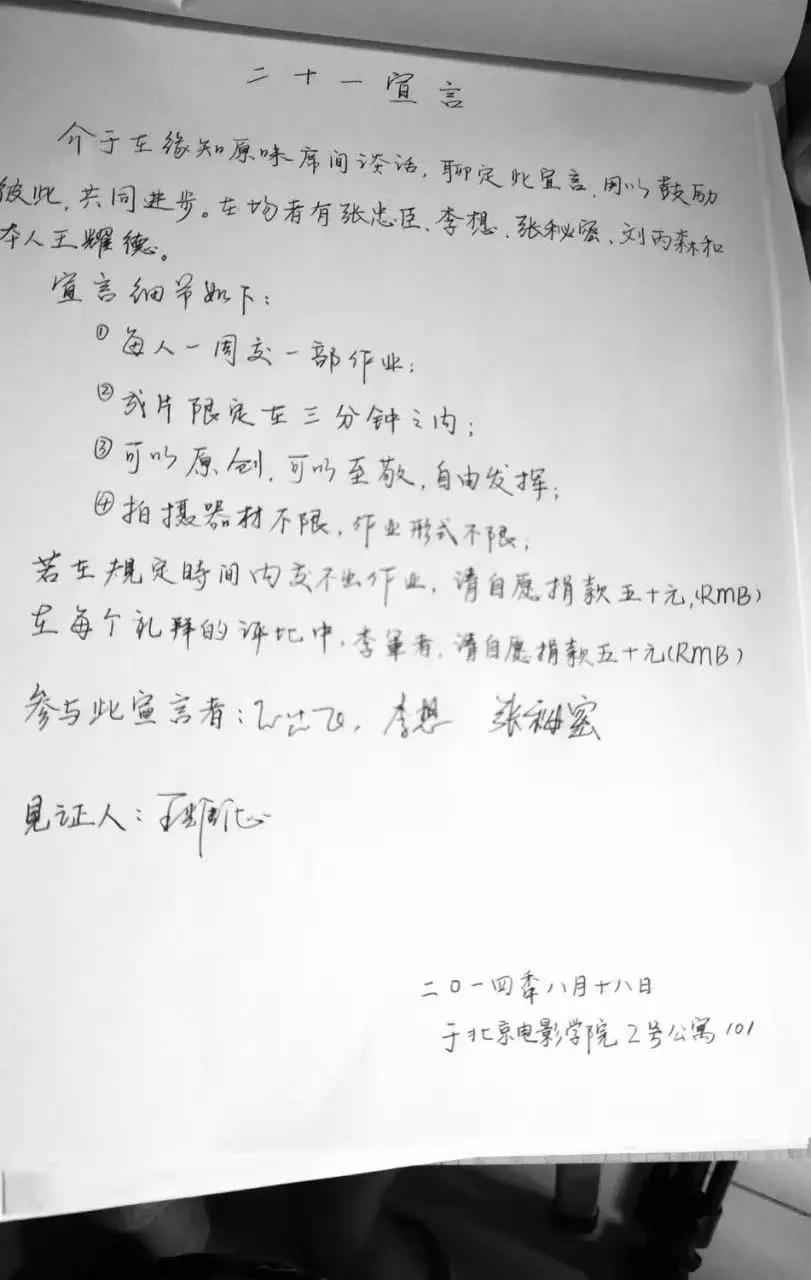 二十一宣言
介于在缘知原味席间谈话，聊定此宣言，用以鼓励
彼此，共同进步。在场者有张忠臣、李想、张秘密、刘丙森和
本人王耀德。
宣言细节如下：
①每人一周交一部作业；
②成片限定在三分钟之内；
③可以原创，可以至敬，自由发挥；
④拍摄器材不限，作业形式不限；
若在规定時间内交不出作业，请自愿捐款五十元，(RMB)
在每个礼拜的评比中，李軍者，请自愿捐款五十元(RMB)
参与此宣言者：李想 张秘密
见证人：王耀德
二〇一四年八月十八日
于北京电影学院2号公寓101